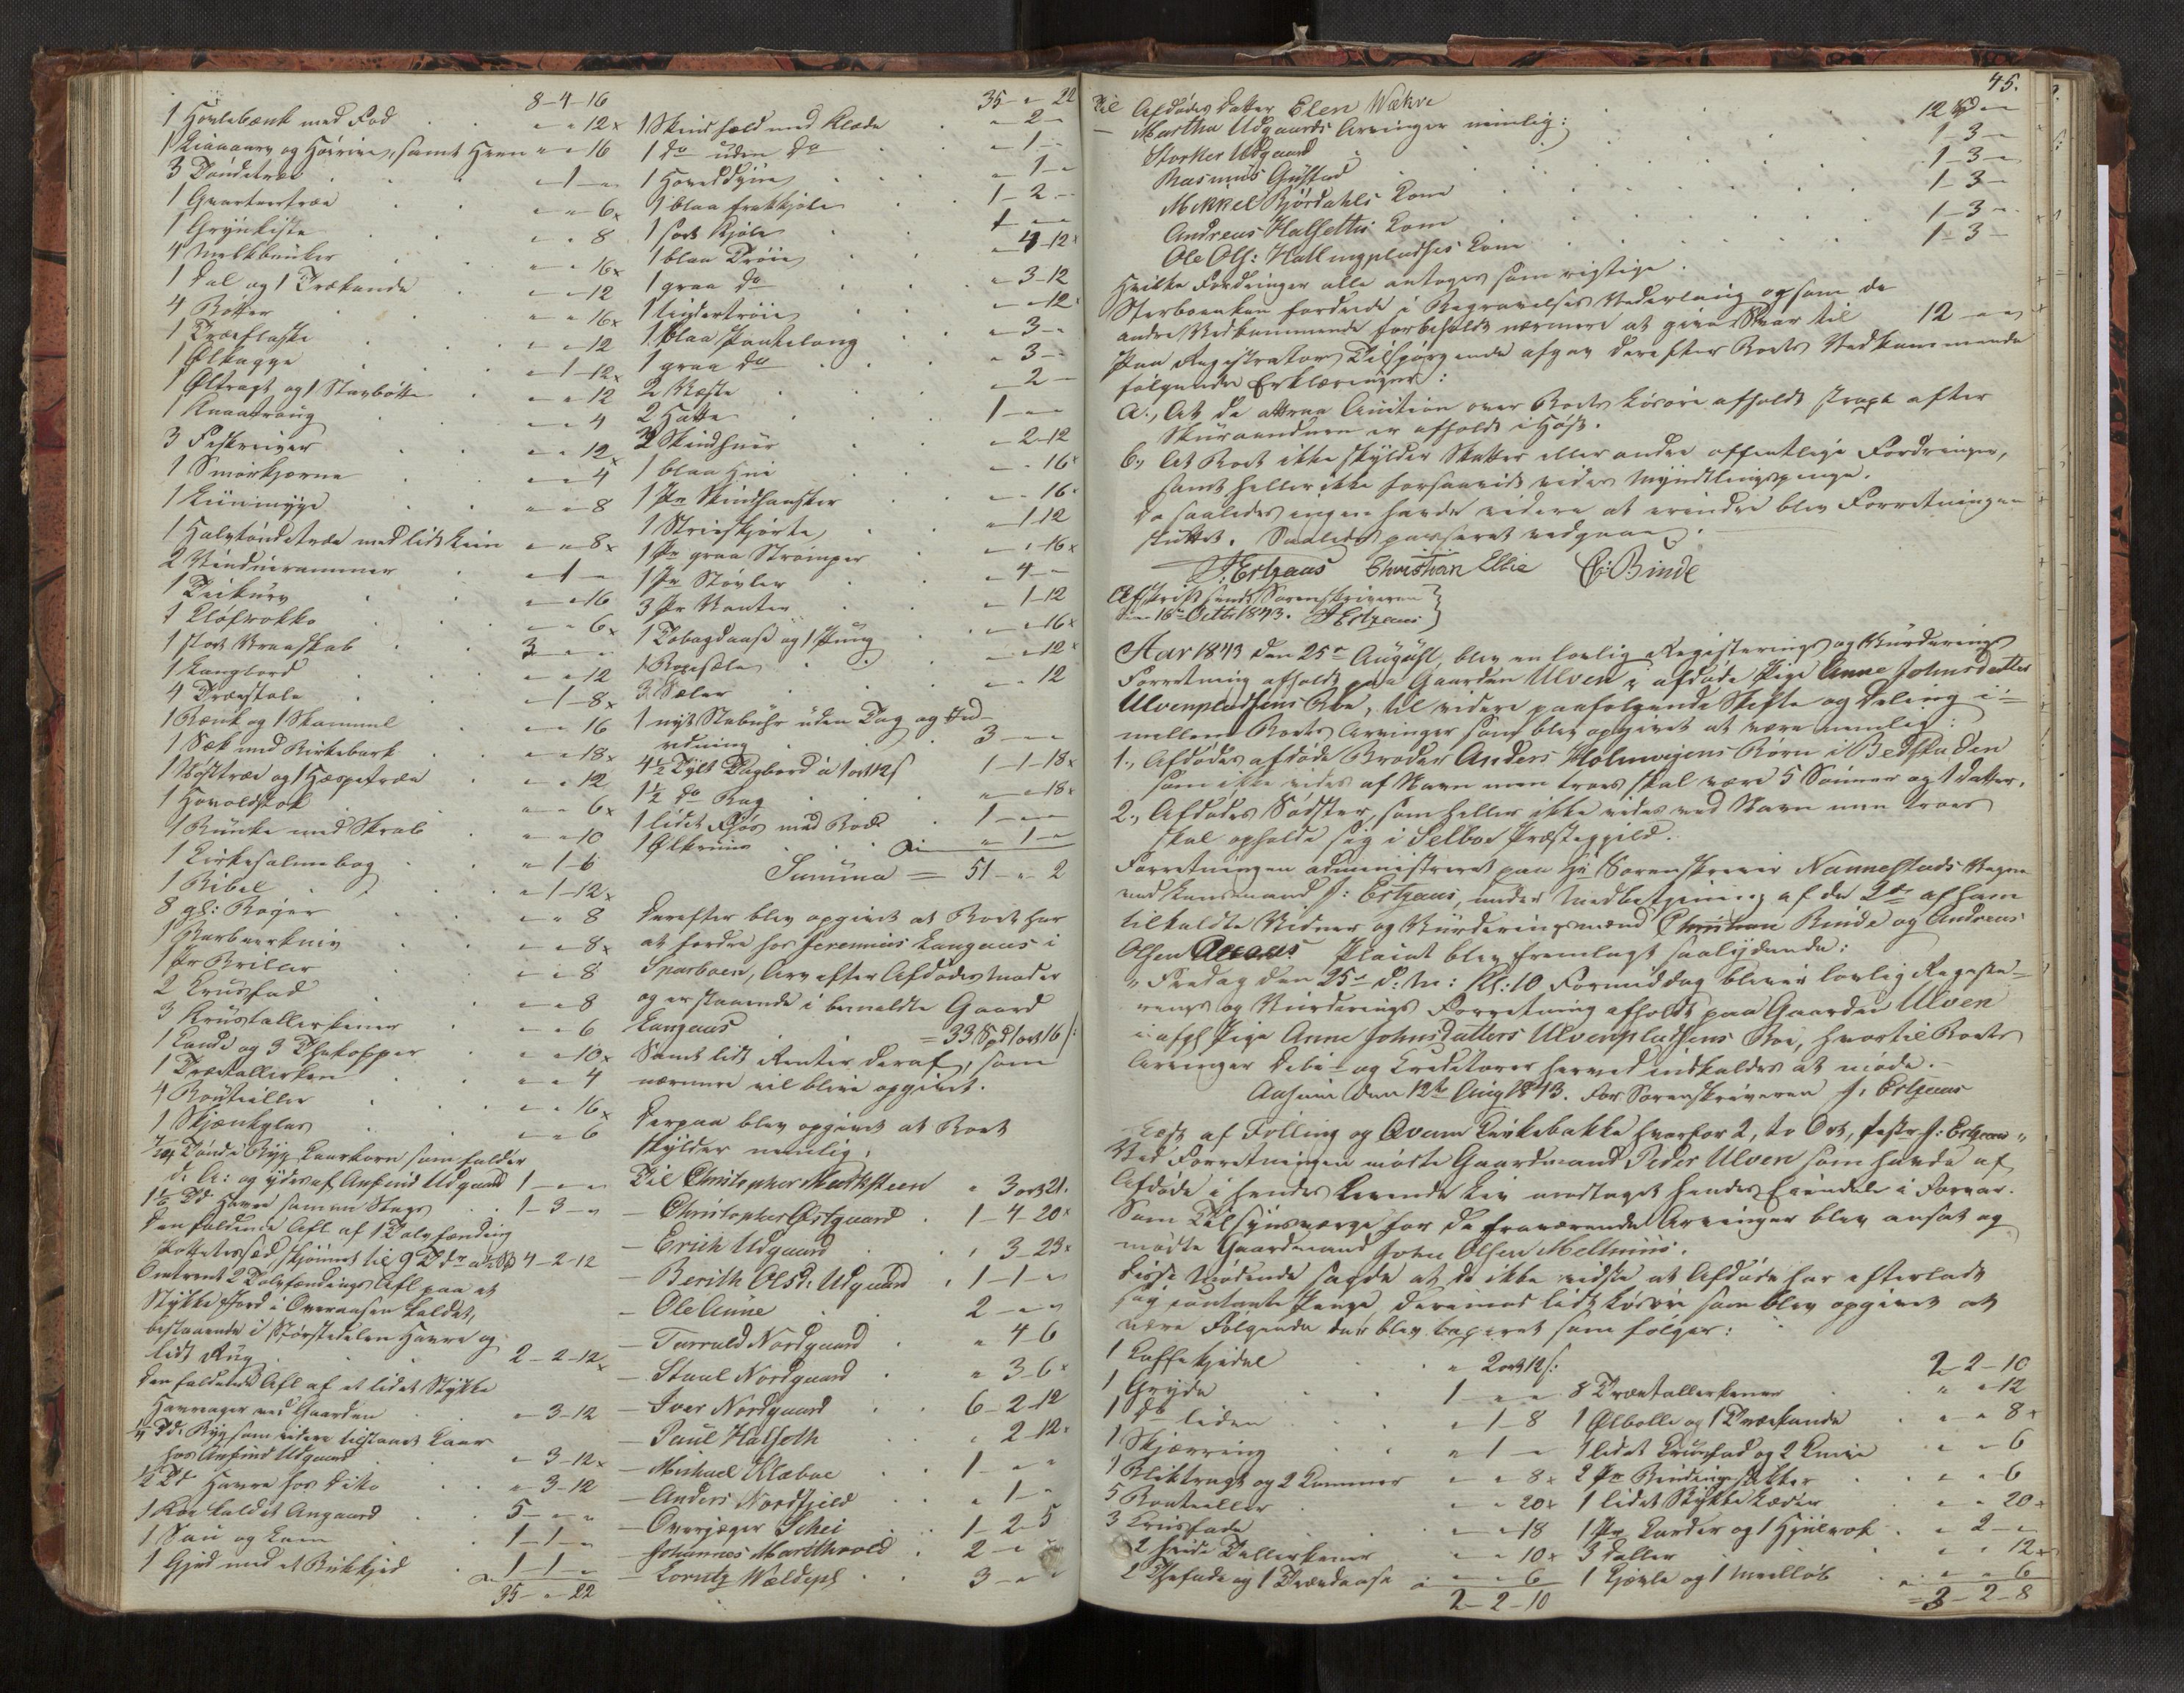 8-4-16
1 Høvlebænk med Fod - " 12x
og samt " " 16
3 Tøndetræe - 1 - "
1 Qvartertræe " " 6x
1 Grynkiste " " 8
4 Melkbunker " " 16x
1 Dal og 1 Trækande " " 12
4 Bøtter " " 16x
1 Træflaske " " 12
1 Ølkagge - 1 - 12x
1 Øltragt og 1 Stavbøtte " " 12
1 Knaattroug " " 4
3 " " 12x
1 Smørkjærne " " 4
1 " " 8
1 Halvtøndetræe med lidt " " 8x
2 Vinduerammer - 1 -
1 " " 16
1 Kløfrokke " " 6x
1 stort Vraaskab 3 - "
1 Langbord " " 12
4 Træestole - 1 - 8x
1 Bænk og 1 Skammel " " 16
1 Sæk med Birkebark " " 18x
1 og 1 Hæspetræe " " 12
1 " " 6x
1 Bunke med Skrab " " 10
1 Kirkesalmebog " 1 - 6
1 Bibel " 1 - 12x
8 gl: Bøger " " 8
1 Barbeerkniv " " 8x
1 Pr Briller " " 8
2 Kruusfad " " 8
3 Krustallerkener " " 6
1 Kande og 3 Thekopper " " 10x
1 Trætallerken " " 4
4 Bouteiller " " 16x
1 Skjænkglas " " 6
Tønde Byg Kaarkorn som falder
d: A: og ydes af Arnfind Udgaard 1 - " "
1½ Td Havre samme Slags 1 - 3 - "
den faldende Afl af 1
Pottetessæd, skjønnet til 9 Tdr 4 - 2 - 12
Omtrent 2 Afl paa et
Stykke Jord i Overaasen kaldet,
bestaaende i Størstedelen Havre og
lidt Rug 2 - 2 - 12x
den faldende Afl af et lidet Stykke
Havreager ved Gaarden " 3 - 12
Td: Byg som videre tilstaaet Kaar
hos Arnfind Udgaard " 3 - 12x
½ Td Havre hos Dito " 3 - 12
1 Koe kaldet Angaard 5 - " "
1 Sau og Lam 1 - 1 - "
1 Gjed med et Bukkjed 1 - 1 - "
35 - " - 22
35 - " 22
1 Skindfæld med Klæde " 2 -
1 do uden do " 1 -
1 Hoveddyne " 1 -
1 blaa frakkjole 1 - 2 -
1 sort Kjole 1 - -
1 blaa Trøie " 4 - 12x
1 graa do " 3 - 12
1 Undertrøie " " 12
1 blaa Pantelong " 3 -
1 graa do " 3 -
2 Væste " 2 -
2 Hatte 1 - "
2 Skindhuer " 2 - 12
1 blaa Hue " " 16x
1 Pr Skindhansker " " 16
1 Striskjorte " 1 12
1 Pr graa Strømper " " 16x
1 Pr Støvler " 4 -
3 Pr Vanter " 1 - 12
1 Tobagdaase og 1 Pung " " 16x
1 " " 12x
3 Sæler " " 12
1 nyt Stabuhr uden Tag og Ind-
redning 3 - "
4½ Tylt Tagbord a 1 ort 12 s 1 - 1 - 18x
1½ do Bag " " 18x
1 lidet Fjøs med Bod 1 - "
1 " 1 -
Summa = 51 - " 2
Derefter blev opgivet at Boet har
at fordre hos Jeremias Langaas i
Sparboen, Arv efter Afdødes Moder
og er staaende i bemeldte Gaard
Langaas = 33 Spd 1 ort 16 s:
Samt lidt Renter deraf, som
nærmere vil blive opgivet.
Derpaa blev opgivet at Boet
skylder nemlig:
Til Christopher Markesteen " 3 ort 21.
- Christopher Østgaard 1 - 4 - 20x
- Erich Udgaard " 3 - 23x
- Berith Olsd: Udgaard 1 - 1 - "
- Ole Aune 2 - " "
- Tarrald Nordgaard " 4 - 6
- Staal Nordgaard " 3 - 6x
- Iver Nordgaard 6 - 2 - 12
- Paul Halseth " 2 - 12
- Michael Klæboe 1 - " "
- Anders Nordfjeld " 1 - "
- Overjæger Schei 1 - 2 - 5
- Johannes Marthrold 2 - "
- Lorntz Wældeph 3 - " "
45.
Til Afdødes Datter Elen Wækre 12 Spd "
- Martha Udgaards Arvinger nemlig:
Storker Udgaard 1 - 3 -
Rasmus Gustad 1 - 3 -
Mikkel Bjørdahls Kone 1 - 3 -
Andreas Halsetter Kone 1 - 3 -
Ole Ols: Hallingpladses Kone 1 - 3 -
Hvilke Fordringer alle antages som rigtige.
Sterboenken fordrede i Begravelses Vederlaug og som de
andre Vedkommende forbeholdt nærmere at give Svar til 12 - "
Paa Registrators Tilspørgende afgav derefter Boets Vedkommende
følgende Erklæringer:
a., At de attraa Auction over Boets Løsøre afholdt strax efter
Skuraanden er afholdt i Høst.
b., At Boet ikke skylder Skatter eller andre offentlige Fordringer,
samt heller ikke forsaavidt vides Myndlingspenge.
Da saaledes ingen havde videre at erindre blev Forretningen
sluttet. Saaledes passeret vedgaaes.
J. Estzaas Christian Ellie C: Binde
Afskrift sendt Sorenskriveren
den 16de Octbr 1843. J Estzaas
Aar 1843 den 25de August, blev en lovlig Registrerings og Vurderings
Forretning afholdt paa Gaarden Ulven i afdøde Pige Anne Johnsdatter
Ulvenpladsens Boe, til videre paafølgende Skifte og Deling i-
mellem Boets Arvinger som blev opgivet at være nemlig:
1., Afdødes afdøde Broder Anders Holmvigens Børn i Bedstaden
som ikke vides af Navn men troes skal være 5 Sønner og 1 Datter.
2., Afdødes Sødster, som heller ikke vides ved Navn men troes
skal opholde sig i Selboe Præstegjeld.
Forretningen administreret paa Hr Sorenskriver Nannestads Vegne
ved Lensmand J: Estzaas, under Medbetjening af de 2de af ham
tilkaldte Vidner og Vurderingsmænd Christian Binde og Andreas
Olsen Placat blev fremlagt saalydende:
"Fredag den 25de d: M: Kl: 10 Formiddag bliver lovlig Registre-
rings og Vurderings Forretning afholdt paa Gaarden Ulven
i afgl Pige Anne Johnsdatters Ulvenpladsens Boe, hvortil Boets
Arvinger Debi- og Creditorer herved indkaldes at møde.-
Aasum den 12te Aug 1843. For Sorenskriveren J: Estzaas
Læst af Følling og Qvam Kirkebakke hvorfor 2, to Ort, J: Estzaas"
Ved Forretningen mødte Gaardmand Peder Ulven som havde af
Afdøde i hendes levende Liv modtaget hendes Eiendele i Forvar.
Som Tilsynsværge for de fraværende Arvinger blev ansat og
mødte Gaardmand John Olsen Mellmius.
Disse Mødende sagde at de ikke vidste at Afdøde har efterladt
sig contante Penge, derimod lidt Løsøre som blev opgivet at
være Følgende der blev taxeret som følger:
1 Kaffekjedel " 2 ort 12 s:
1 Gryde 1 - "
1 do liden " 1 - 8
1 Skjærring " 1 -
1 Bliktragt og 2 Kummer " " 8x
5 Bouteiller " " 20x
3 Kruusfade " " 18
2 hvide Tallerkener " " 10x
2 Thefade og 1 Trædaase " " 6
2 - 2 - 10
2 - 2 - 10
8 Trætallerkener " " 12
1 Ølbolle og 1 Trækande " " 8x
1 lidet Kruusfad og 2 Knive " " 6
2 Pr Bindingsstikker " " 6
1 lidet Stykke Læder " " 20x
1 Pr Karder og 1 Hjulrok " 2 - "
3 Daller " " 12x
1 Kjævle og 1 " " 6
3 - 2 - 8